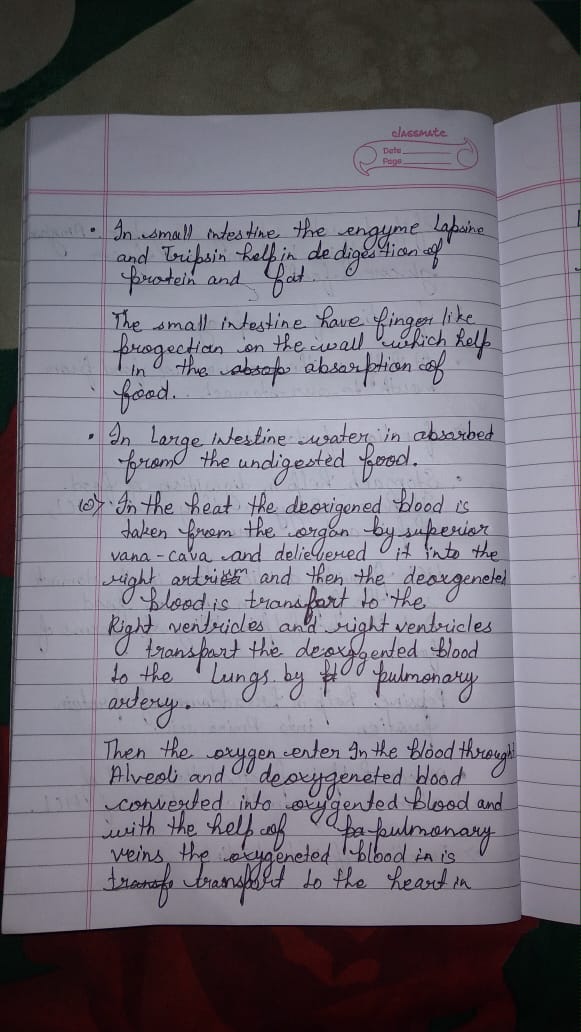 classmate
Date
Page
• In small intestine the engyme Lapaine
and Tripsin help in de digestion of
protein and fat.
The small intestine have finger like
progection on the wall which help
in the absop absorption of
food.
• In Large intestine water in absorbed
from the undigested food.
(6) In the heat the deoxigened blood is
taken from the organ by superior
vana-cava and delievered it into the
right artrium and then the deoxgeneted
blood is transport to the
Right ventricles and right ventricles
transport the deoxygented blood
to the Lungs by pulmonary
artery.
Then the oxygen enter In the blood through
Alveoli and deoxygeneted blood
converted into oxygented blood and
with the help of pa pulmonary
veins the oxygeneted blood in is
transfo transport to the heart in